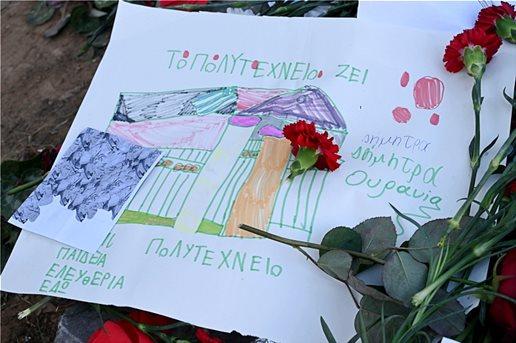 ΤΟ ΠΟΛΥΤΕΧΝΕΙΟ ΖΕΙ
Δήμητρα
Δήμητρα
Ουρανία
ΠΟΛΥΤΕΧΝΕΙΟ
ΠΑΙΔΕΙΑ
ΕΛΕΥΘΕΡΙΑ
ΕΔΩ